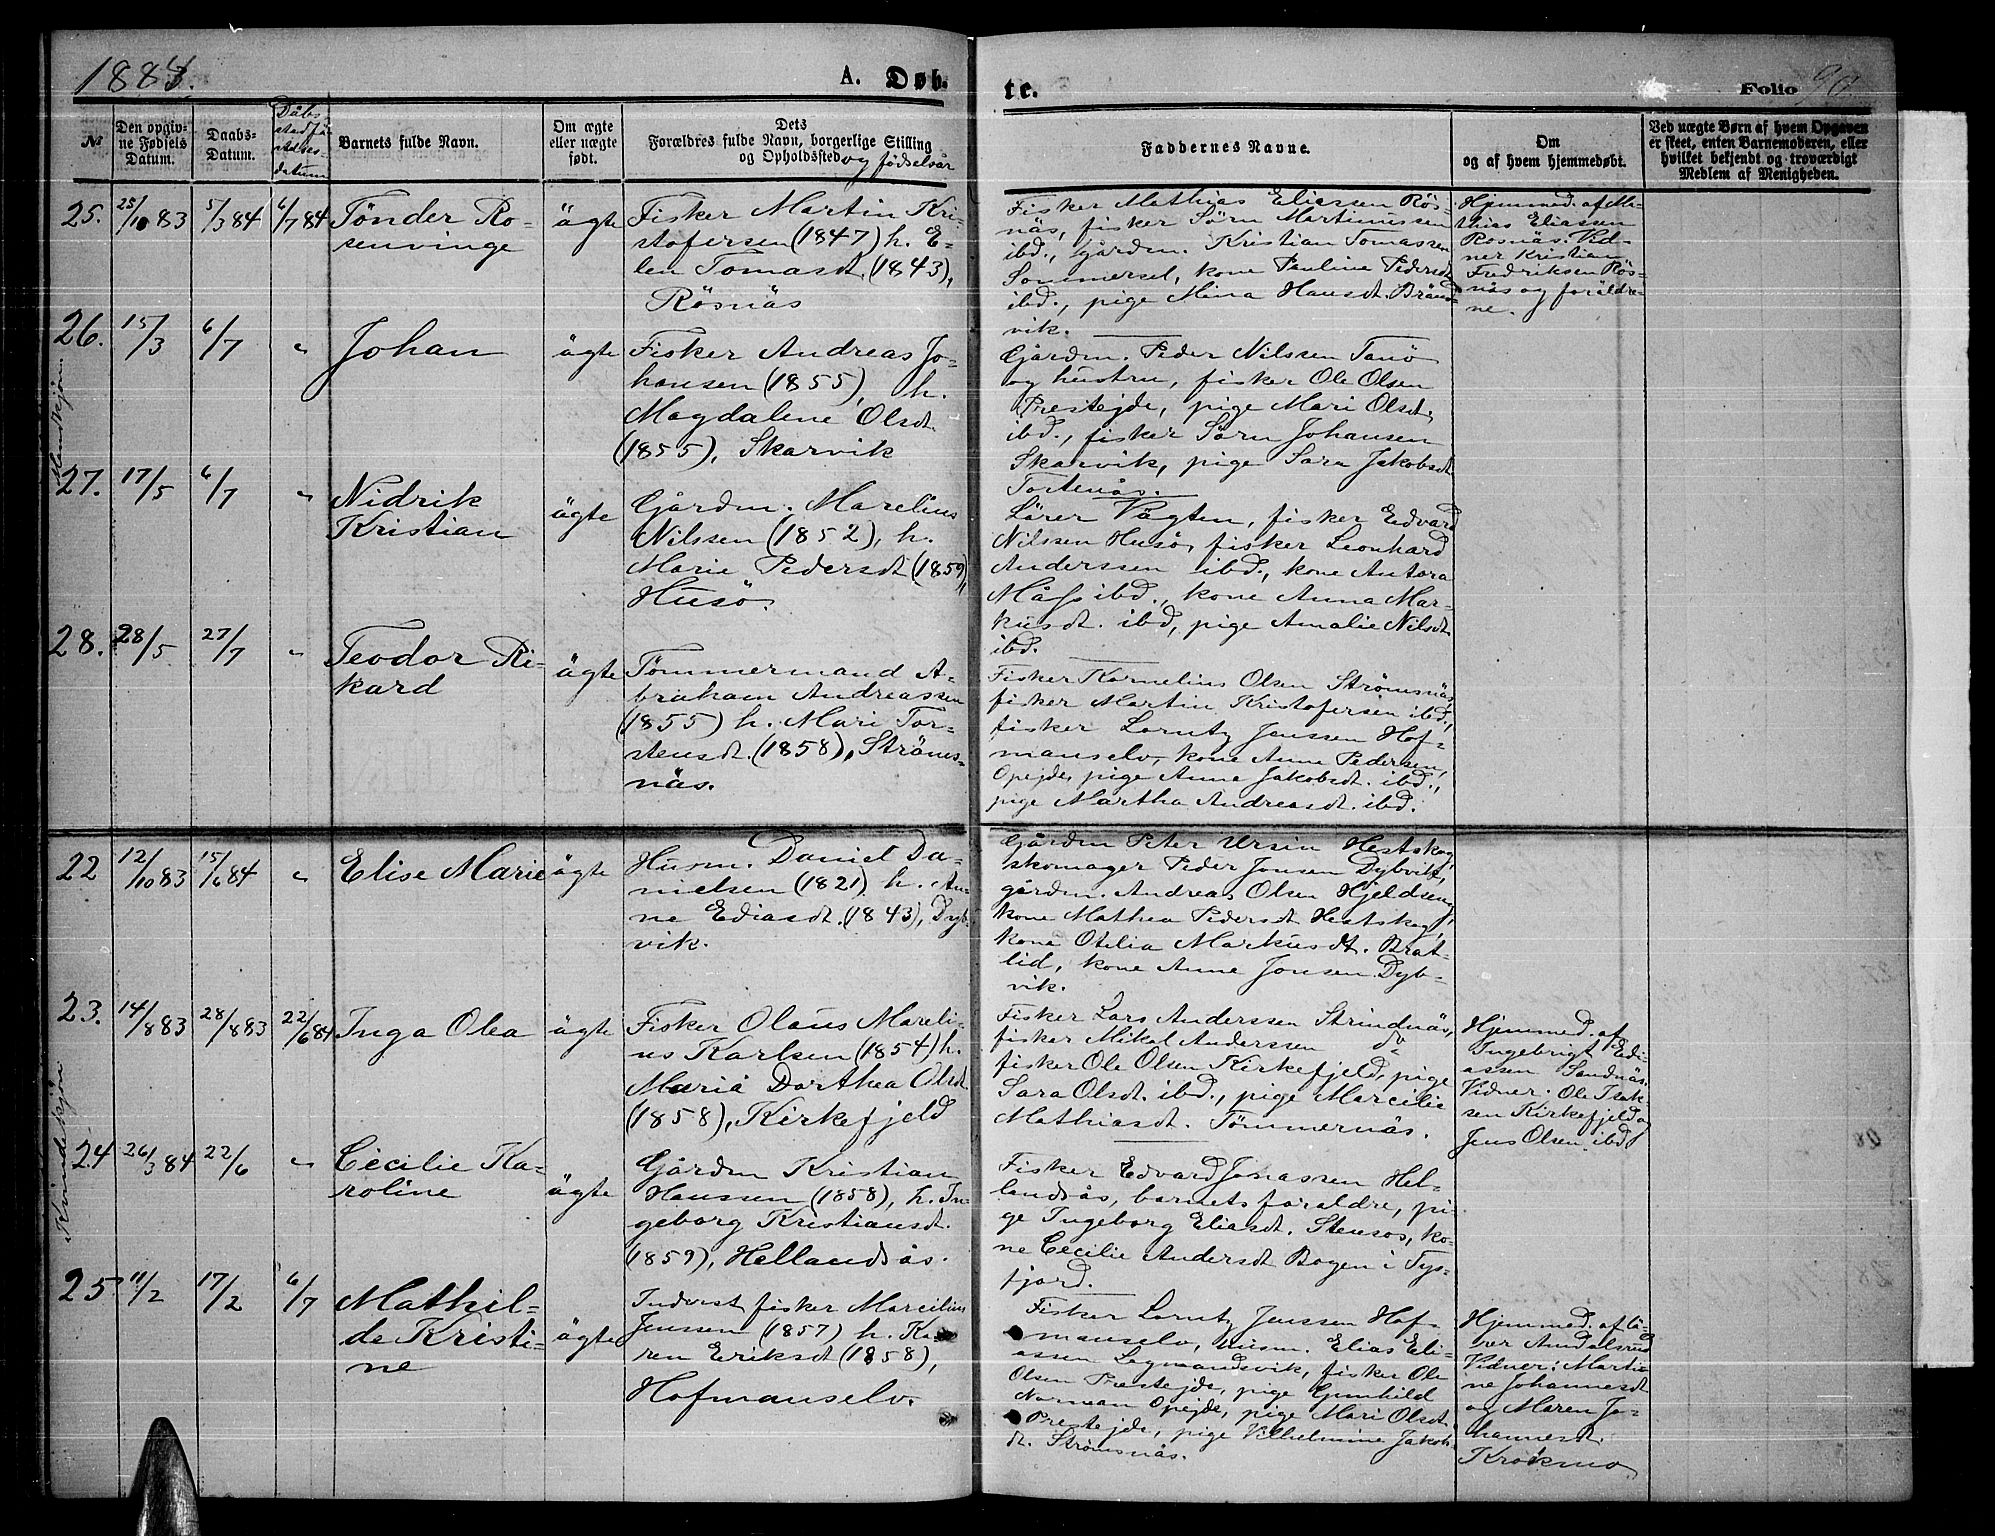 1884.
A. Døb.
te.
Folio 90
№
Den opgiv-
ne Fødsels
Datum.
Daabs-
Datum.
Dåbs-
stadfæ-
stelses-
datum
Barnets fulde Navn.
Om ægte
eller uægte
født.
Dets
Forældres fulde Navn, borgerlige Stilling
og Opholdssted og fødselsår
Faddernes Navne.
Om
og af hvem hjemmedøbt.
Ved uægte Børn af hvem Opgaven
er skeet, enten Barnemoderen, eller
hvilket bekjendt og troværdigt
Medlem af Menigheden.
Mandkjøn
25. 25/10 83 5/3 84 6/7 84 Tönder Ro-
senvinge
ägte
Fisker Martin Kri-
stofersen (1847) h. E-
len Tomasdt. (1843),
Rösnäs
Fisker Mathias Eliassen Rös-
näs, fisker Sørn Martinussen
ibd., Gårdm. Kristian Tomassen
Sommersel, kone Pauline Pedersdt.
ibd., pige Mina Hansdt. Bränd-
vik.
Hjemmed. af Ma-
thias Eliassen
Rosnäs. Vid-
ner Kristian
Fredriksen Rös-
näs og foräldre-
ne.
26. 15/3 6/7 " Johan ägte
Fisker Andreas Jo-
hansen (1855), h.
Magdalene Olsdt.
(1855), Skarvik
Gårdm. Peder Nilssen Tanö
og hustru, fisker Ole Olsen
Prestejde, pige Mari Olsdt,
ibd., fisker Sørn Johansen
Skarvik, pige Sara Jakobsdt
Tortenås.
27. 17/5 6/7 " Nidrik
Kristian
ägte
Gårdm. Marelius
Nilssen (1852), h.
Marie Pedersdt (1859),
Husö.
Lärer Vågten, fisker Edvard
Nilssen Husö, fisker Leonhard
Anderssen ibd., kone Antora
Måss ibd., kone Anna Mar-
kusdt. ibd, pige Amalie Nilsdt
ibd.
28. 28/5 27/7 " Teodor Ri-
kard
ägte
Tömmermand A-
braham Andreassen
(1855) h. Mari Tor-
stensdt. (1858), Ströms-
näs.
Fisker Kornelius Olsen Strömsnäs,
fisker Martin Kristofersen ibd.,
fisker Lorntz Jenssen Hof-
manselv, kone Anne Pedersen,
Opejde, pige Anne Jakobsdt. ibd.,
pige Martha Andreasdt. ibd.
Kvindekjøn
22 12/10 83 15/6 84 " Elise Marie ägte
Husm. Daniel Da-
nielsen (1821) h. An-
ne Ediasdt. (1843), Dyb-
vik.
Gårdm Peter Ursin Hestskog,
skomager Peder Jonsen Dybvik,
gårdm. Andreas Olsen Hjeldseng,
kone Mathea Pedersdt Hestskog,
kone Otelia Markusdt. Brat-
lid, kone Anne Jonsen Dyb-
vik.
23. 14/8 83 28/8 83 22/6 84 Inga Olea ägte
Fisker Olaus Mareli-
us Karlsen (1854) h.
Maria Dorthea Olsdt
(1858), Kirkefjeld
Fisker Lars Anderssen Strindnäs,
fisker Mikal Anderssen do
fisker Ole Olsen Kirkefjeld, pige
Sara Olsdt. ibd., pige Marcilie
Mathiasdt. Tömmernäs.
Hjemmed. af
Ingebrigt Edi-
assen Sandnäs.
Vidner: Ole Isak-
sen Kirkefjeld og
Jens Olsen ibd
24 26/3 84 22/6 " Cecilie Ka-
roline
ägte
Gårdm Kristian
Hanssen (1858), h. In-
geborg Kristiansdt.
(1859), Hellandsås.
Fisker Edvard Jonassen Hel-
landsås, barnets forældre, pi-
ge Ingeborg Eliasdt. Stensos, ko-
ne Cecilie Andersdt Bogen i Tys-
fjord.
25 11/2 17/2 6/7 Mathil-
de Kristi-
ne
ägte
Indvist fisker Marcilius
Jenssen (1857) h. Ka-
ren Eriksdt (1858),
Hofmanselv.
Fisker Lorntz Jenssen Hof-
manselv, husm. Elias Eli-
assen Lagmandsvik, fisker Ole
Olsen Prestejde, pige Gunhild
Norman Opejde, pige Mari Olsdt.
Prestejde, pige Vilhelmine Jakobs-
dt. Strömsnäs.
Hjemmed. af lä-
rer Aandalsrud
Vidner: Marti-
ne Johannesdt
og Maren Jo-
hannesdt.
Krokmo